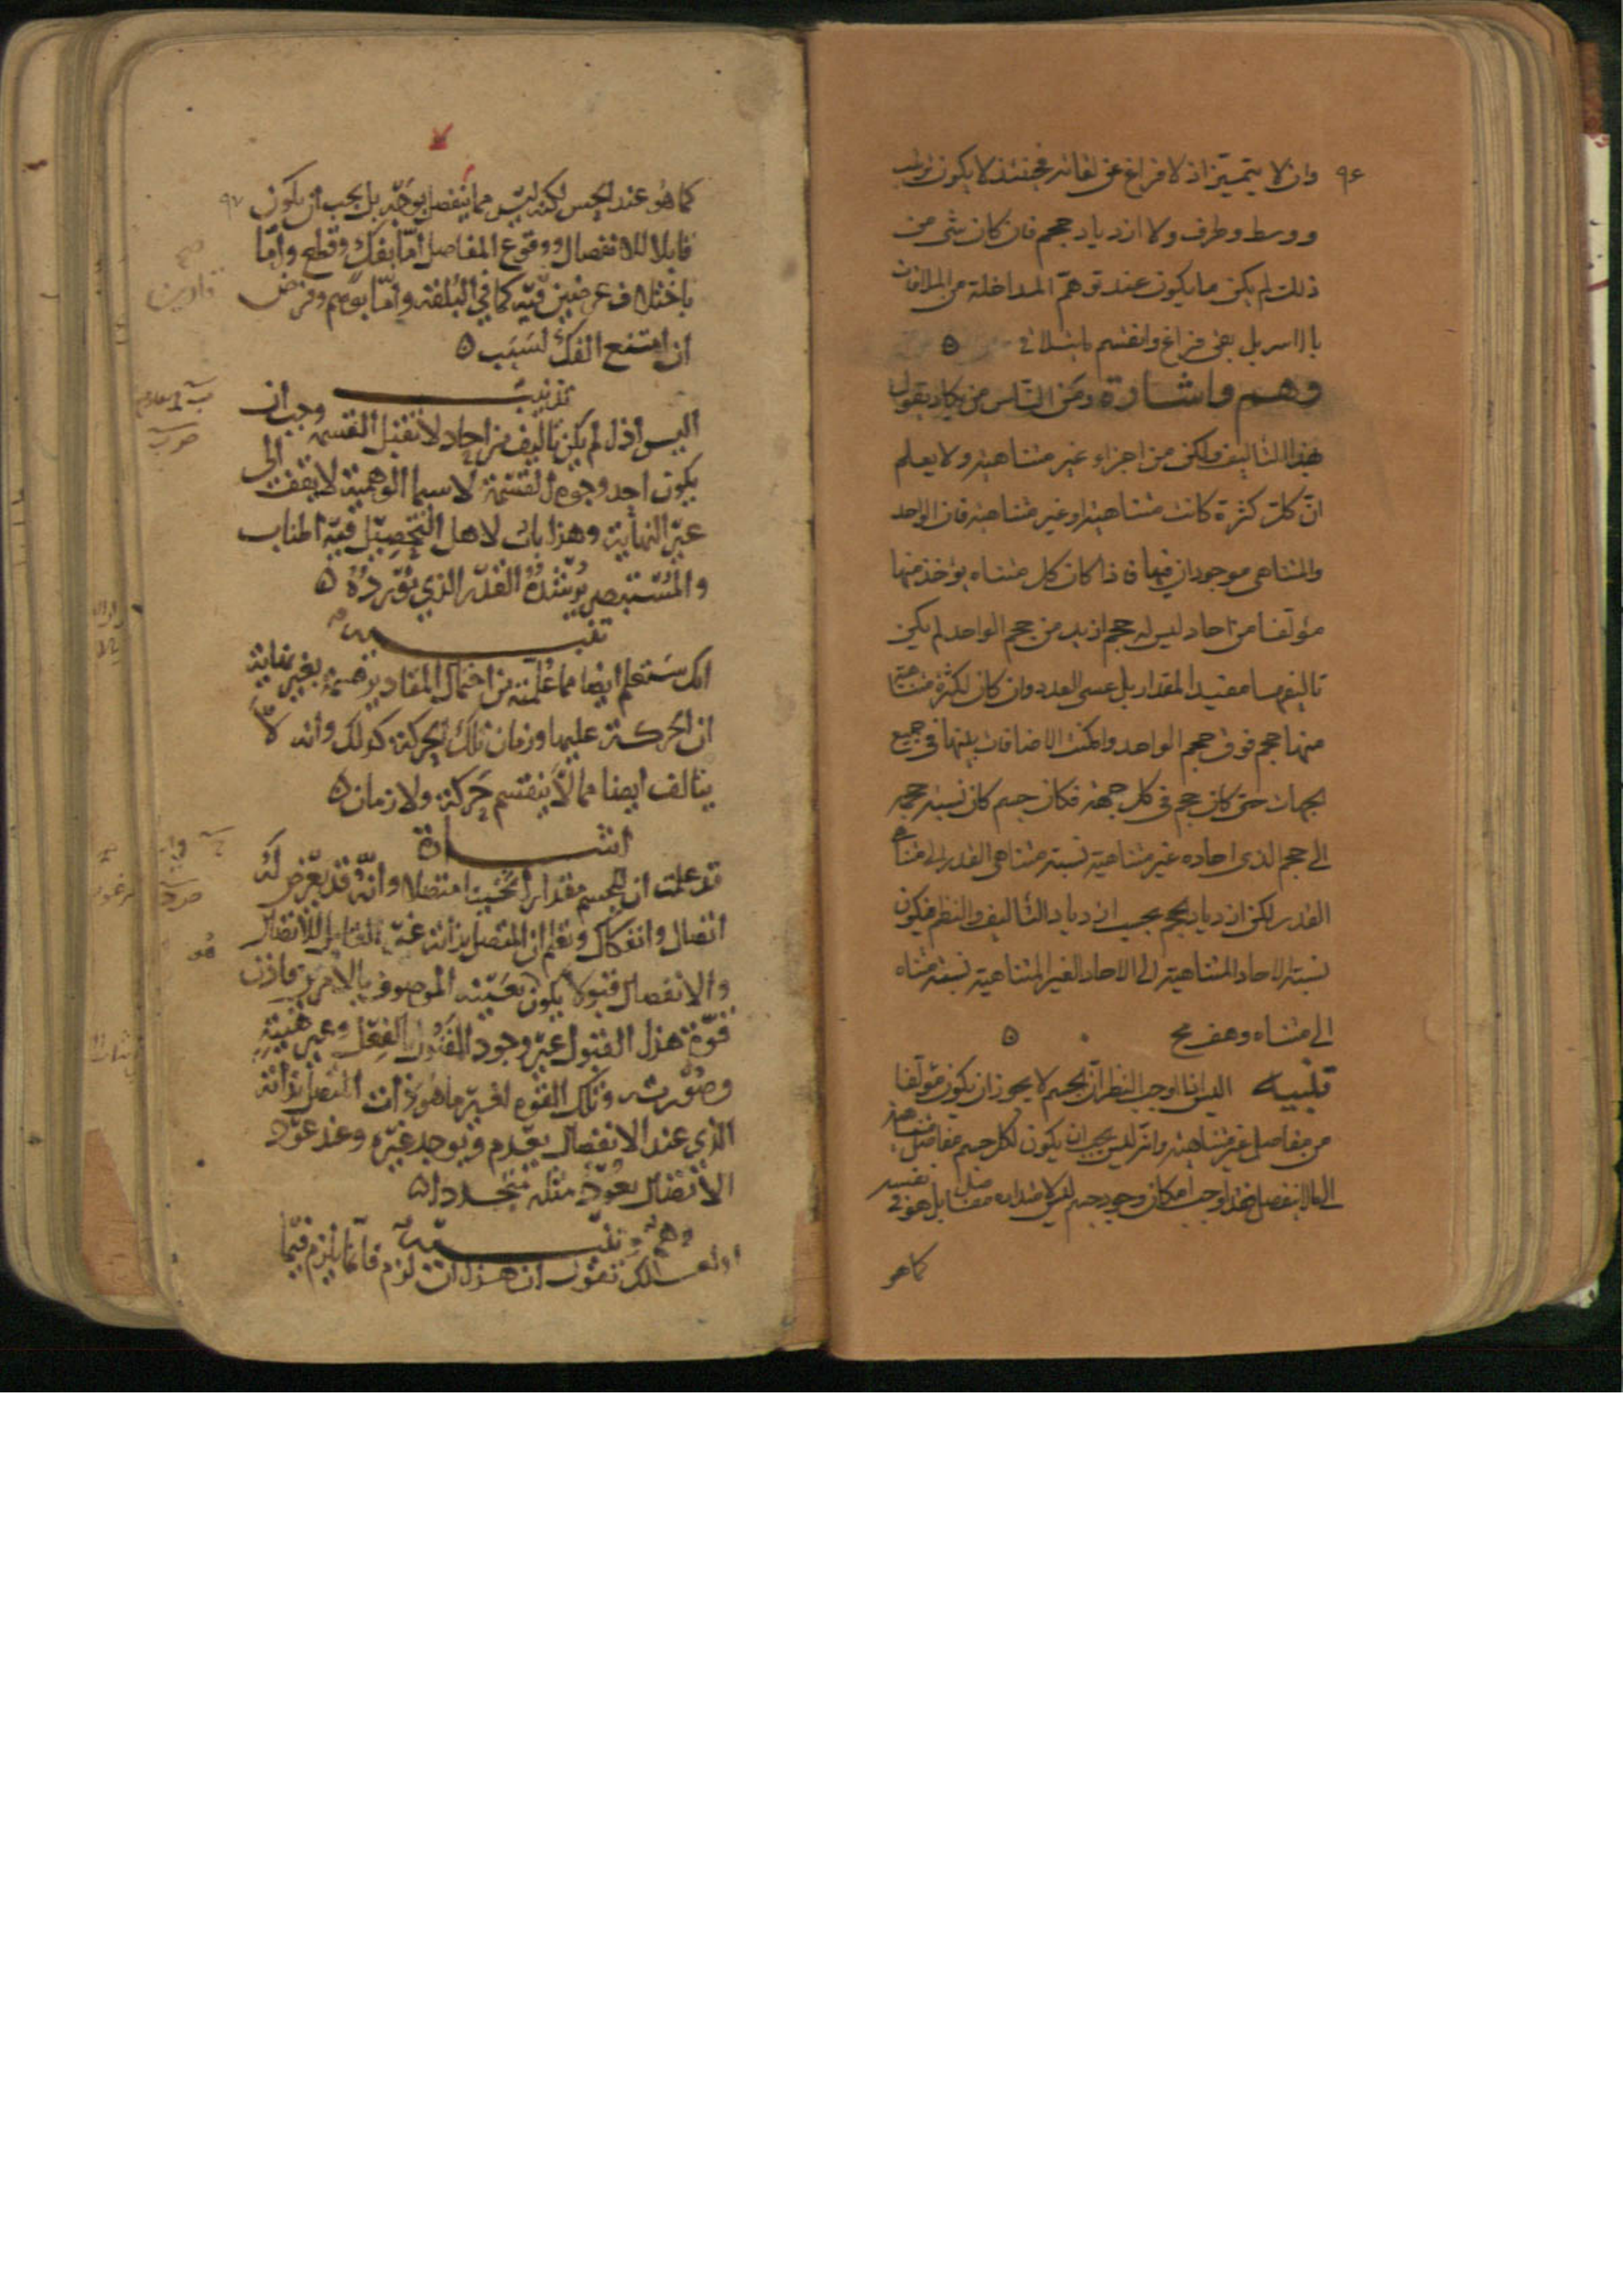 ٩٦
وان لا يتميز اذ لا فراغ عن لقائه فحينئذ لا يكون ترتيب
ووسط وطرف ولا ازدياد حجم فان كان شى من
ذلك لم يكن ما يكون عند توهم المداخلة من الملاقات
بالاسر بل بقى فراغ وانقسم
وهم واشارة ومن الناس من يكاد يقول
بهذا التاليف ولكن من اجزاء غير متناهية ولا يعلم
ان كل كثرة كانت متناهية او غير متناهية فان الواحد
والمتناهى موجودان فيها فاذا كان كل متناه يؤخذ منها
مؤلفا من احاد ليس له حجم ازيد من حجم الواحد لم يكن
تاليفهما مفيدا لمقدار بل عسى العدد وان كان لكثرة متناهية
منها حجم فوق حجم الواحد وامكنت الاضافات بينها فى جميع
الجهات حتى كان حجم فى كل جهة فكان جسم كان نسبة حجمه
الى حجم الذى احاده غير متناهية نسبة متناهى القدر الى متناهى
القدر لكن ازدياد الحجم بحسب ازدياد التاليف والنظم فيكون
نسبة الاحاد المتناهية الى الاحاد الغير المتناهية نسبة متناه
الى متناه وهف مح
تنبيه اليس اذا اوجب النظر ان الجسم لا يجوز ان يكون مؤلفا
من مفاصل غير متناهية وانه ليس يجب ان يكون لكل جسم مفاصل متناهية
الى ما لا ينفصل فقد اوجب امكان وجود جسم ليس لامتداده مفاصل بل هو فى نفسه
كما هو
٩٧
كما هو عند الحس لكنه ليس مما ينفصل بوجه بل يجب ان يكون
قابلا للانفصال ووقوع المفاصل اما بفك وقطع واما
باختلاف عرضين فيه كما فى البلقة واما بوهم وفرض
ان امتنع الفك لسبب
تذنيب
اليس اذا لم يكن تاليف من احاد لا تقبل القسمة وجب ان
يكون احد وجوه القسمة لا سيما الوهمية لا يقف الى
غير النهاية وهذا باب لاهل التحصيل فيه اطناب
والمستبصر يرشده القدر الذي نورده
تنبيه
انك ستعلم ايضا مما علمته من احتمال المقادير قسمة بغير نهاية
ان الحركة عليها وزمان تلك الحركة كذلك وانه لا
يتالف ايضا مما لا ينقسم حركة ولا زمان
اشارة
قد علمت ان للجسم مقدارا ثخينا متصلا وانه قد يعرض له
انفصال وانفكاك وتعلم ان المتصل بذاته غير القابل للاتصال
والانفصال قبولا يكون بعينه الموصوف بالامرين فاذن
قوة هذا القبول غير وجود المقبول بالفعل وغير هيئته
وصورته وتلك القوة لغير ما هو ذات المتصل بذاته
الذي عند الانفصال يعدم ويوجد غيره وعند عود
الاتصال يعود مثله متجددا
وهم وتنبيه
او لعلك تقول ان هذا ان لزم فانما يلزم فيما